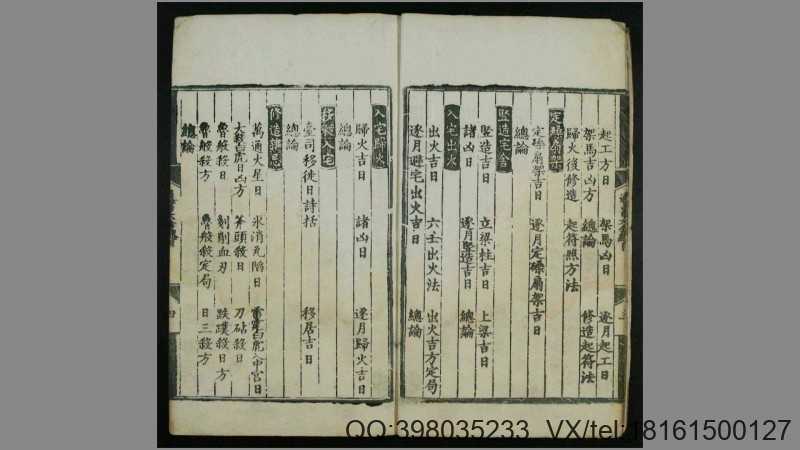 起工方日 架馬凶日 逐月起工日
架馬吉凶方 總論 修造起符法
歸火後修造 起符照方法
定磉扇架
定磉扇架吉日 逐月定磉扇架吉日
總論
竪造宅舍
竪造吉日 立梁柱吉日 上梁吉日
諸凶日 逐月竪造吉日 總論
入宅出火
出火吉日 六壬出火法 出火吉方定局
逐月避宅出火吉日 總論
入宅歸火
歸火吉日 諸凶日 逐月歸火吉日
總論
移徙入宅
臺司移徙日詩括 移居吉日
總論
修造
萬通火星日 氷消瓦陷日 雷霆白虎入中宮日
大殺白虎日凶方 斧頭殺日 刀砧殺日
魯般殺日 剗削血刃 跌蹼殺日方
魯般殺方 魯般殺定局 日三殺方
總論
四
QQ:398035233 VX/tel:18161500127